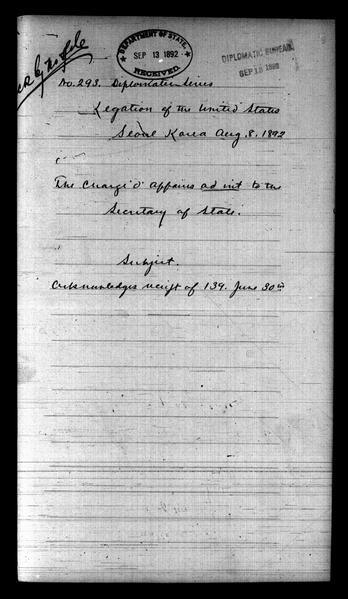 DEPARTMENT OF STATE.
SEP 13 1892
RECEIVED.
DIPLOMATIC BUREAU.
SEP 1892
No. 293. Diplomatic Series
Legation of the United States
Seoul Korea Aug. 8. 1892
The Chargé d' Affaires ad int to the
Secretary of State.
Subject.
Acknowledges receipt of 139. June 30th